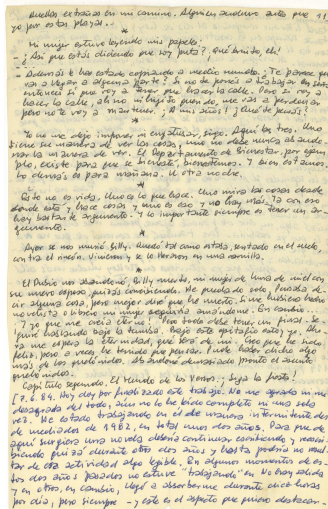 huellas extrañas en mi camino. Alguien anduvo antes que
yo por estas playas..
*
Mi mujer estuvo leyendo mis papeles:
- ¿Así que estás diciendo que soy puta?, Qué bonito, eh!
*
- Además te has estado copiando a medio mundo. ¿Te parece que
vas a llegar a alguna parte? Si no te ponés a trabajar en serio
entonces sí que voy a tener que hacer la calle. Pero si voy a
hacer la calle, ah no mi hijito querido, me vas a perdonar
pero no te voy a mantener. ¡A mis años! ¿Qué te pensás?
*
Yo no me dejo imponer ni engatusar, sigo. Aquí los tres. Uno
tiene su manera de ver las cosas, uno no debe nunca abando-
nar la manera de ver. El Departamento de Bienestar, por ejem-
plo, existe para que se sienta bienestamos. Y bien estamos.
Lo demás es para mañana. U otra noche.
*
Esto no es vida. Uno es lo que hace. Uno mira las cosas desde
donde está y hace cosas y uno es eso y no hay más. Ya con eso
hay bastante argumento. Y lo importante siempre es tener un ar-
gumento.
*
Ayer se nos murió Billy. Quedó tal como estaba, sentado en el suelo,
contra el rincón. Vinieron y se lo llevaron en una camilla.
*
El Rubio nos abandonó, Billy muerto, mi mujer de luna de miel con
su nuevo esposo quizás conocido. He quedado solo. Pensaba de-
cir alguna cosa, pero mejor diré que he muerto. Si me hubiera hecho
novelista o bicho mi mujer seguiría amándome. En cambio..
- Y yo que me creía eterno! Pero todo debe tener un final. Se-
guiré hablando bajo la tumba. Bajo este epitafio estoy yo. Ahí
ya me espera la eternidad, que será de mí. Creo que he sido
feliz, pero a veces he tenido que pensar. Pude haber dicho algo
más de los quebrados. Abandoné demasiado pronto el asunto
quebrados.
Capítulo segundo. El Mundo de los Versos. ¡Siga la fiesta!
[7.6.84. Hoy doy por finalizado este trabajo. No me agrada ni me
desagrada del todo, aún no lo he leído completo ni una sola
vez. He estado trabajando en él de manera intermitente des-
de mediados de 1982, en total unos dos años. Para que de
aquí surgiera una novela debería continuar escribiendo y rees-
cribiendo quizá durante otros dos años y hasta podría no resul-
tar de esa actividad algo legible. En algunos momentos de es-
tos dos años pasados no estuve "trabajando" en Nadie salida
y en otros, en cambio, llegó a absorberme durante cinco horas
por día, pero siempre - y este es el aspecto que quiero destacar-